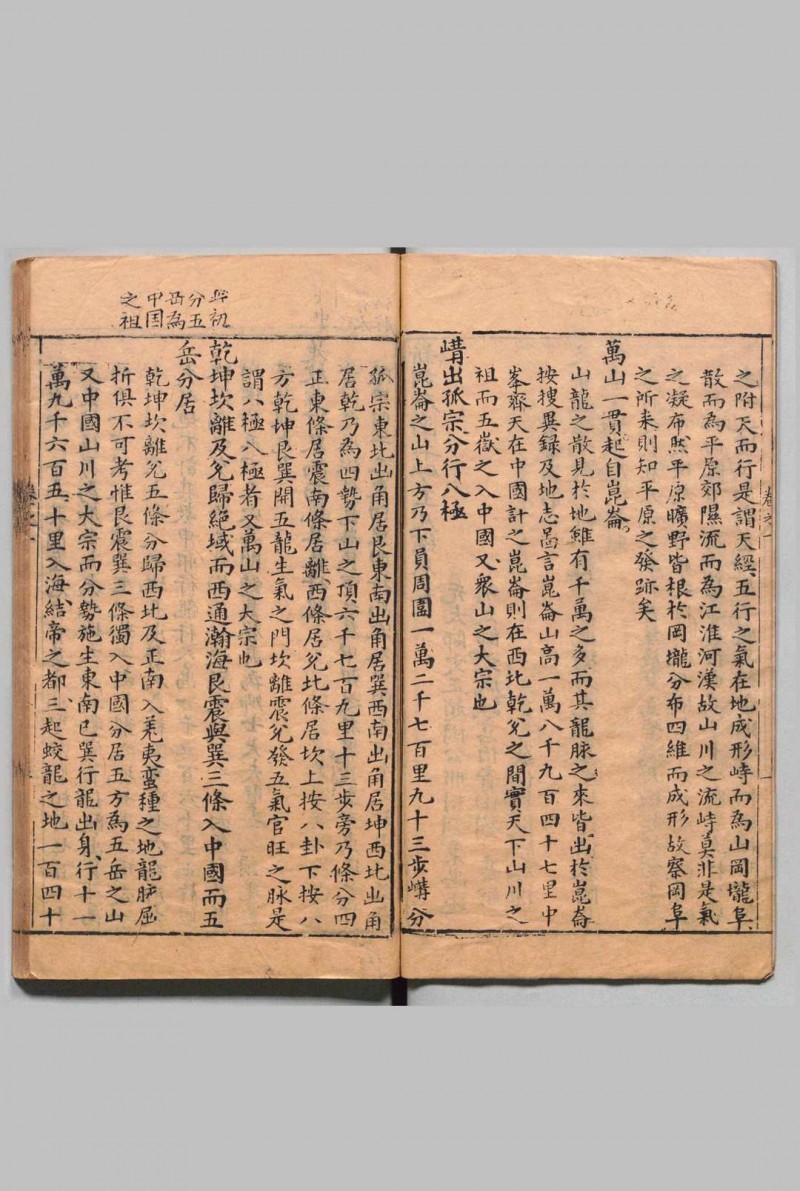 之附天而行是謂天經五行之氣在地成形峙而為山岡壠阜
散而為平原郊隰流而為江淮河漢故山川之流峙莫非是氣
之凝布然平原曠野皆根於岡壠分布四維而成形故察岡阜
之所来則知平原之發跡矣
萬山一貫起自崑崙
山龍之散見於地雖有千萬之多而其龍脉之來皆出於崑崙
按搜異録及地志昌言崑崙山高一萬八千九百四十七里中
峯齊天在中國計之崑崙則在西北乾兊之間實天下山川之
祖而五嶽之入中國又衆山之大宗也
嵴出孤宗分行八極
崑崙之山上方乃下員周圍一萬二千七百里九十三步嵴分
孤宗東北出角居艮東南出角居巽西南出角居坤西北出角
居乾乃為四勢下山之頂六千七百九里十三步旁乃條分四
正東條居震南條居離西條居兊北條居坎上按八卦下按八
方乾坤艮巽開五龍生氣之門坎離震兊發五氣官旺之脉是
謂八極八極者又萬山之大宗也
乾坤坎離及兊歸絕域而西通瀚海艮震與巽三條入中國而五
岳分居
乾坤坎離兊五條分歸西北及正南入羗夷蠻種之地龍胪屈
折俱不可考惟艮震巽三條獨入中國分居五方為五岳之山
又中國山川之大宗而分勢施生東南已巽行龍出身行十一
萬九千六百五十里入海結帝之都三起蛟龍之地一百四十
分五
岳為
中国
之祖
卷之一